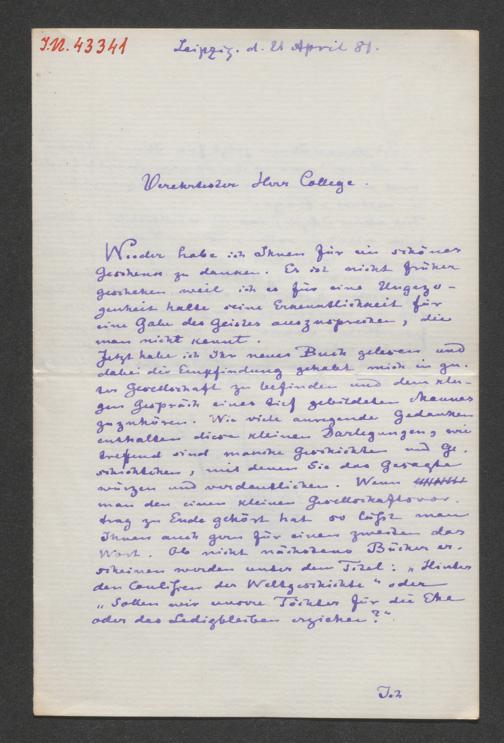 I.N. 43341
Leipzig. d. 21 April 81.
Verehrtester Herr College.
Wieder habe ich Ihnen für ein schönes
Geschenk zu danken. Es ist nicht früher
geschehen weil ich es für eine Ungezo-
genheit halte seine Erkenntlichkeit für
eine Gabe des Geistes auszusprechen, die
man nicht kennt.
Jetzt habe ich Ihr neues Buch gelesen und
dabei die Empfindung gehabt mich in gu-
ter Gesellschaft zu befinden und dem klu-
gen Gespräch eines tief gebildeten Mannes
zuzuhören. Wie viele anregende Gedanken
enthalten diese kleinen Darlegungen, wie
treffend sind manche Geschichten und Ge-
schichtchen, mit denen Sie das Gesagte
würzen und verdeutlichen. Wenn
man den einen kleinen Gesellschaftsvor-
trag zu Ende gehört hat so läßt man
Ihnen auch gern für einen zweiten das
Wort. Ob nicht nächstens Bücher er-
scheinen werden unter dem Titel: „Hinter
den Coulissen der Weltgeschichte" oder
„Sollen wir unsere Töchter für die Ehe
oder das Ledigbleiben erziehen?".